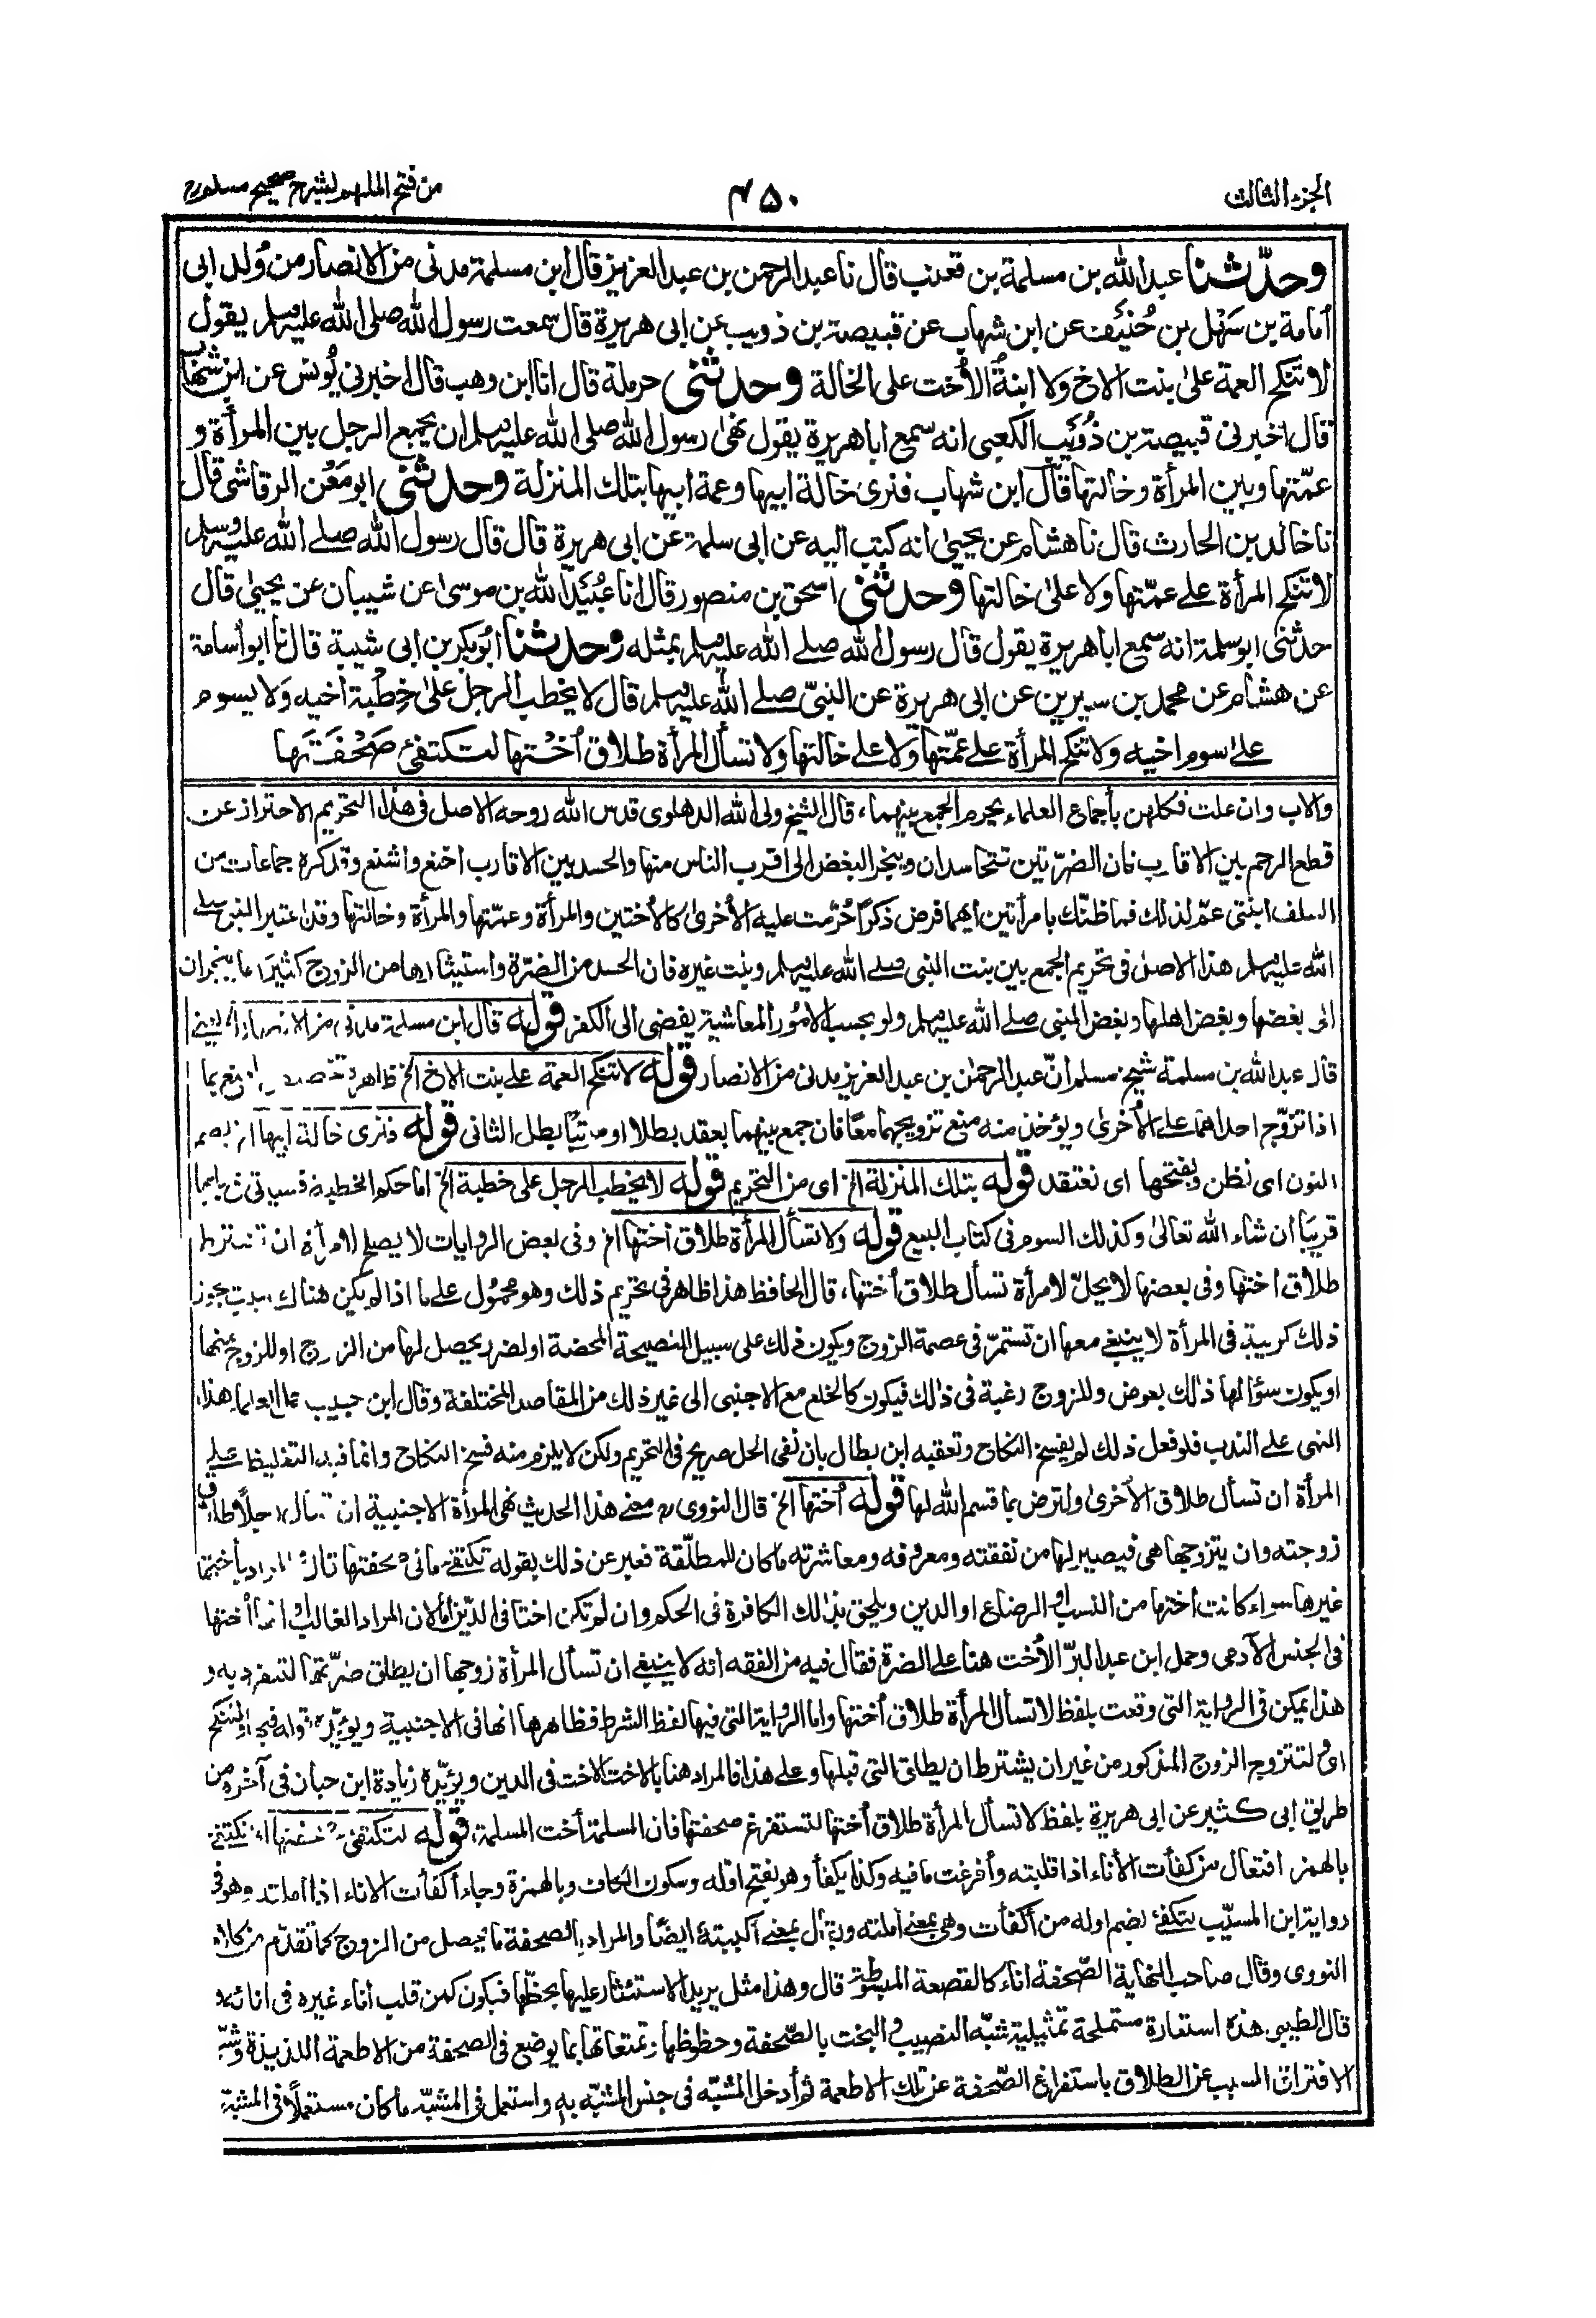 الجزء الثالث
٤٥٠
من فتح الملهم لشرح صحيح مسلم
وحدّثنا عبد الله بن مسلمة بن قعنب قال نا عبد الرحمن بن عبد العزيز قال ابن مسلمة مدنى من الانصار من وُلد ابى
اُمامة بن سَهْل بن حُنَيْف عن ابن شهاب عن قبيصة بن ذويب عن ابى هريرة قال سمعت رسول الله صلى الله عليه وسلم يقول
لا تنكح العمة على بنت الاخ ولا ابنةُ الاُخت على الخالة وحدثنى حرملة قال انا ابن وهب قال اخبرنى يُونس عن ابن شهاب
قال اخبرنى قبيصة بن ذُوَيب الكعبى انه سمع ابا هريرة يقول نهى رسول الله صلى الله عليه وسلم ان يجمع الرجل بين المرأة و
عمّتها وبين المرأة وخالتها قال ابن شهاب فنرى خالة ابيها وعمة ابيها بتلك المنزلة وحدثنى ابو مَعْن الرقاشى قال
نا خالد بن الحارث قال نا هشام عن يحيى انه كتب اليه عن ابى سلمة عن ابى هريرة قال قال رسول الله صلى الله عليه وسلم
لا تنكح المرأة على عمّتها ولا على خالتها وحدثنى اسحق بن منصور قال انا عُبَيد الله بن موسى عن شيبان عن يحيى قال
حدثنى ابو سلمة انه سمع ابا هريرة يقول قال رسول الله صلى الله عليه وسلم بمثله وحدثنا ابو بكر بن ابى شيبة قال نا ابو اُسامة
عن هشام عن محمد بن سيرين عن ابى هريرة عن النبىّ صلى الله عليه وسلم قال لا يخطب الرجل على خِطْبة اخيه وَلا يسوم
على سوم اخيه ولا تنكح المرأة على عمّتها ولا على خالتها ولا تسأل المرأة طلاق اُخْتها لتكتفئ صَحْفَتَها
والاب وان علت فكلهن بأجماع العلماء يحرم الجمع بينهما، قال الشيخ ولى الله الدهلوى قدس الله روحه الاصل فى هذا التحريم الاحتراز عن
قطع الرحم بين الاقارب فان الضرّتين تتحاسدان وينجر البغض الى اقرب الناس منها والحسد بين الاقارب اخنع واشنع وقد كره جماعات من
السلف ابنتى عمّ لذلك فما ظنّك بامرأتين ايهما فرض ذكرًا حُرّمت عليه الاُخرى كالاُختين والمرأة وعمّتها والمرأة وخالتها وقد اعتبر النبى صلى
الله عليه وسلم هذا الاصل فى تحريم الجمع بين بنت النبى صلى الله عليه وسلم وبنت غيره فان الحسد من الضرّة واستيثارها من الزوج كثيرًا ما ينجران
الى بغضها وبغض اهلها وبغض النبى صلى الله عليه وسلم ولو بحسب الامُور المعاشية يفضى الى الكفر قوله قال ابن مسلمة مدنى من الانصار
قال عبد الله بن مسلمة شيخ مسلم انّ عبد الرحمن بن عبد العزيز مدنى من الانصار قوله لا تنكح العمة على بنت الاخ الخ ظاهره
اذا تزوّج احداهما على الاُخرى ويؤخذ منه منع تزويجهما معًا فان جمع بينهما بعقد بطلا او مرتبًا بطل الثانى قوله فنرى خالة ابيها الخ بضم
النون اى نظن وبفتحها اى نعتقد قوله بتلك المنزلة الخ اى من التحريم قوله لا يخطب الرجل على خطبة الخ اما حكم الخطبة فسيأتى
قريبًا ان شاء الله تعالى وكذلك السوم فى كتاب البيع قوله ولا تسأل المرأة طلاق اختها الخ وفى بعض الروايات لا يصلح لامرأة ان تشترط
طلاق اختها وفى بعضها لا يحلّ لامرأة تسأل طلاق اُختها، قال الحافظ هذا ظاهر فى تحريم ذلك وهو محمُول على ما اذا لم يكن هناك سبب يجوز
ذلك كريبة فى المرأة لا ينبغى معها ان تستمرّ فى عصمة الزوج ويكون ذلك على سبيل النصيحة المحضة او لضرر يحصل لها من الزوج او للزوج منها
او يكون سؤالها ذلك بعوض وللزوج رغبة فى ذلك فيكون كالخلع مع الاجنبى الى غير ذلك من المقاصد المختلفة وقال ابن حبيب حمل العلماء هذا
النهى على الندب فلو فعل ذلك لم يفسخ النكاح وتعقبه ابن بطال بان نفى الحل صريح فى التحريم ولكن لا يلزم منه فسخ النكاح وانما فيه التغليظ على
المرأة ان تسأل طلاق الاُخرى ولترض بما قسم الله لها قوله اُختها الخ قال النووى معنى هذا الحديث نهى المرأة الاجنبية ان تسأل رجلًا طلاق
زوجته وان يتزوجها هى فيصير لها من نفقته ومعروفه ومعاشرته ما كان للمطلّقة فعبر عن ذلك بقوله تكتفئ ما فى صحفتها قال والمراد بأختها
غيرها سواء كانت أختها من النسب او الرضاع او الدين ويلحق بذلك الكافرة فى الحكم وان لم تكن اختا فى الدّين اما لان المراد الغالب او انها اُختها
فى الجنس الآدمى وحمل ابن عبد البرّ الاُخت هنا على الضرة فقال فيه من الفقه انه لا ينبغى ان تسأل المرأة زوجها ان يطلق ضرّتها لتنفرد به و
هذا يمكن فى الرواية التى وقعت بلفظ لا تسأل المرأة طلاق اُختها واما الرواية التى فيها لفظ الشرط فظاهرها انها فى الاجنبية ويؤيّده قوله فيها ولتنكح
اى لتتزوج الزوج المذكور من غير ان يشترط ان يطلق التى قبلها وعلى هذا فالمراد هنا بالاخت الاخت فى الدين ويؤيّده زيادة ابن حبان فى آخره من
طريق ابى كثير عن ابى هريرة بلفظ لا تسأل المرأة طلاق اُختها لتستفرغ صحفتها فان المسلمة اُخت المسلمة، قوله لتكتفئ صحفتها الخ تكتفئ
بالهمز افتعال من كفأت الاناء اذا قلبته وأفرغت ما فيه وكذا يكفأ وهو بفتح اوّله وسكون الكاف وبالهمزة وجاء أكفأت الاناء اذا املته وهو فى
رواية ابن المسيّب لتكفئ بضم اوله من أكفأت وهى بمعنى املته ويقال بمعنى أكببته ايضًا والمراد بالصحفة ما يحصل من الزوج كما تقدّم من كلام
النووى وقال صاحب النهاية الصّحفة اناء كالقصعة المبسوطة قال وهذا مثل يريد الاستئثار عليها بحظّها فيكون كمن قلب أناء غيره فى انائه
قال الطيبى هذه استعارة مستملحة تمثيلية شبّه النصيب والبخت بالصّحفة وحظوظها وتمتعاتها بما يوضع فى الصحفة من الاطعمة اللذيذة وشبّه
الافتراق المسبب عن الطلاق باستفراغ الصّحفة عن تلك الاطعمة ثم أدخل المشبّه فى جنس المشبّه به واستعمل فى المشبّه ما كان مستعملًا فى المشبّه